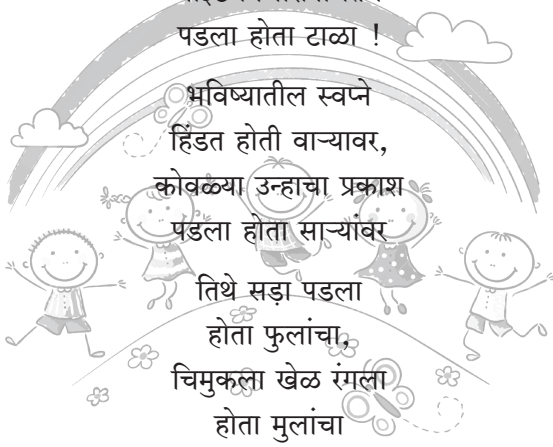 पडला होता टाळा !
भविष्यातील स्वप्ने
हिंडत होती वाऱ्यावर,
कोवळ्या उन्हाचा प्रकाश
पडला होता साऱ्यांवर
तिथे सड़ा पडला
होता फुलांचा,
चिमुकला खेळ रंगला
होता मुलांचा